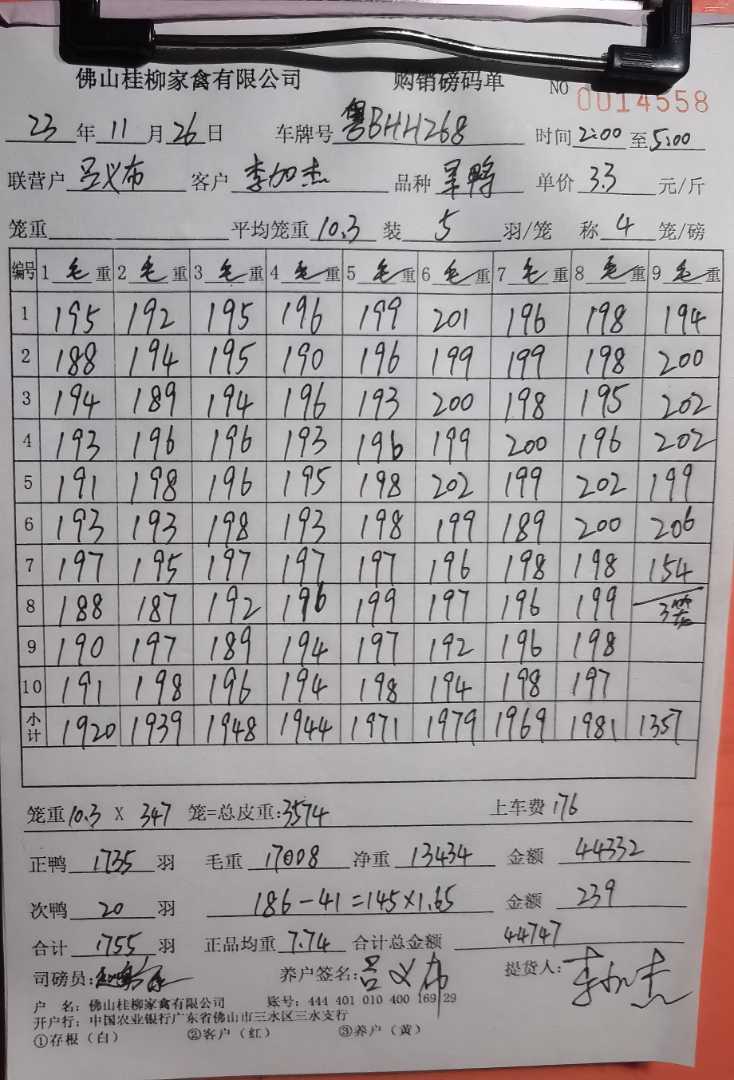 佛山桂柳家禽有限公司 购销磅码单 NO 0014558
23年11月26日 车牌号 粤BHH268 时间2:00至5:00
联营户 吕义布 客户 李加杰 品种 单价 3.3 元/斤
笼重 平均笼重 10.3 装 5 羽/笼 称 4 笼/磅
编号 1 毛重 2 毛重 3 毛重 4 毛重 5 毛重 6 毛重 7 毛重 8 毛重 9 毛重
1 195 192 195 196 199 201 196 198 194
2 188 194 195 190 196 199 199 198 200
3 194 189 194 196 193 200 198 195 202
4 193 196 196 193 196 199 200 196 202
5 191 198 196 195 198 202 199 202 199
6 193 193 198 193 198 199 189 200 206
7 197 195 197 197 197 196 198 198 154
8 188 187 192 196 199 197 196 199 3笼
9 190 197 189 194 197 192 196 198
10 191 198 196 194 198 194 198 197
小计 1920 1939 1948 1944 1971 1979 1969 1981 1357
笼重 10.3 X 347 笼=总皮重:3574 上车费 176
正鸭 1735 羽 毛重 17008 净重 13434 金额 44332
次鸭 20 羽 186-41=145×1.65 金额 239
合计 1755 羽 正品均重 7.74 合计总金额 44747
司磅员: 养户签名: 吕义布 提货人: 李加杰
户 名: 佛山桂柳家禽有限公司 账号: 444 401 010 400 169 29
开户行: 中国农业银行广东省佛山市三水区三水支行
①存根（白） ②客户（红） ③养户（黄）